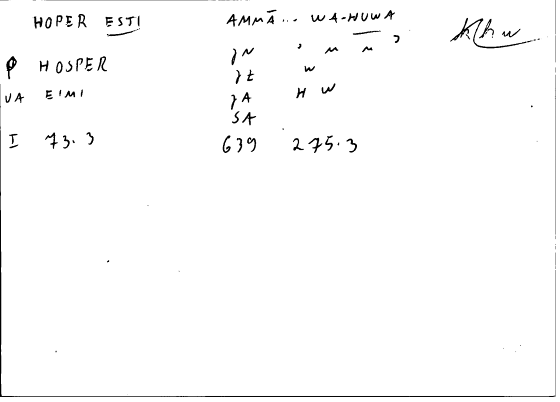 HOPER ESTI AMMĀ... WA-HUWA khw
ʒN ' m m ʾ
φ HOSPER ʒt w
VA EIMI ʒA H W
SA
I 73.3 639 275.3